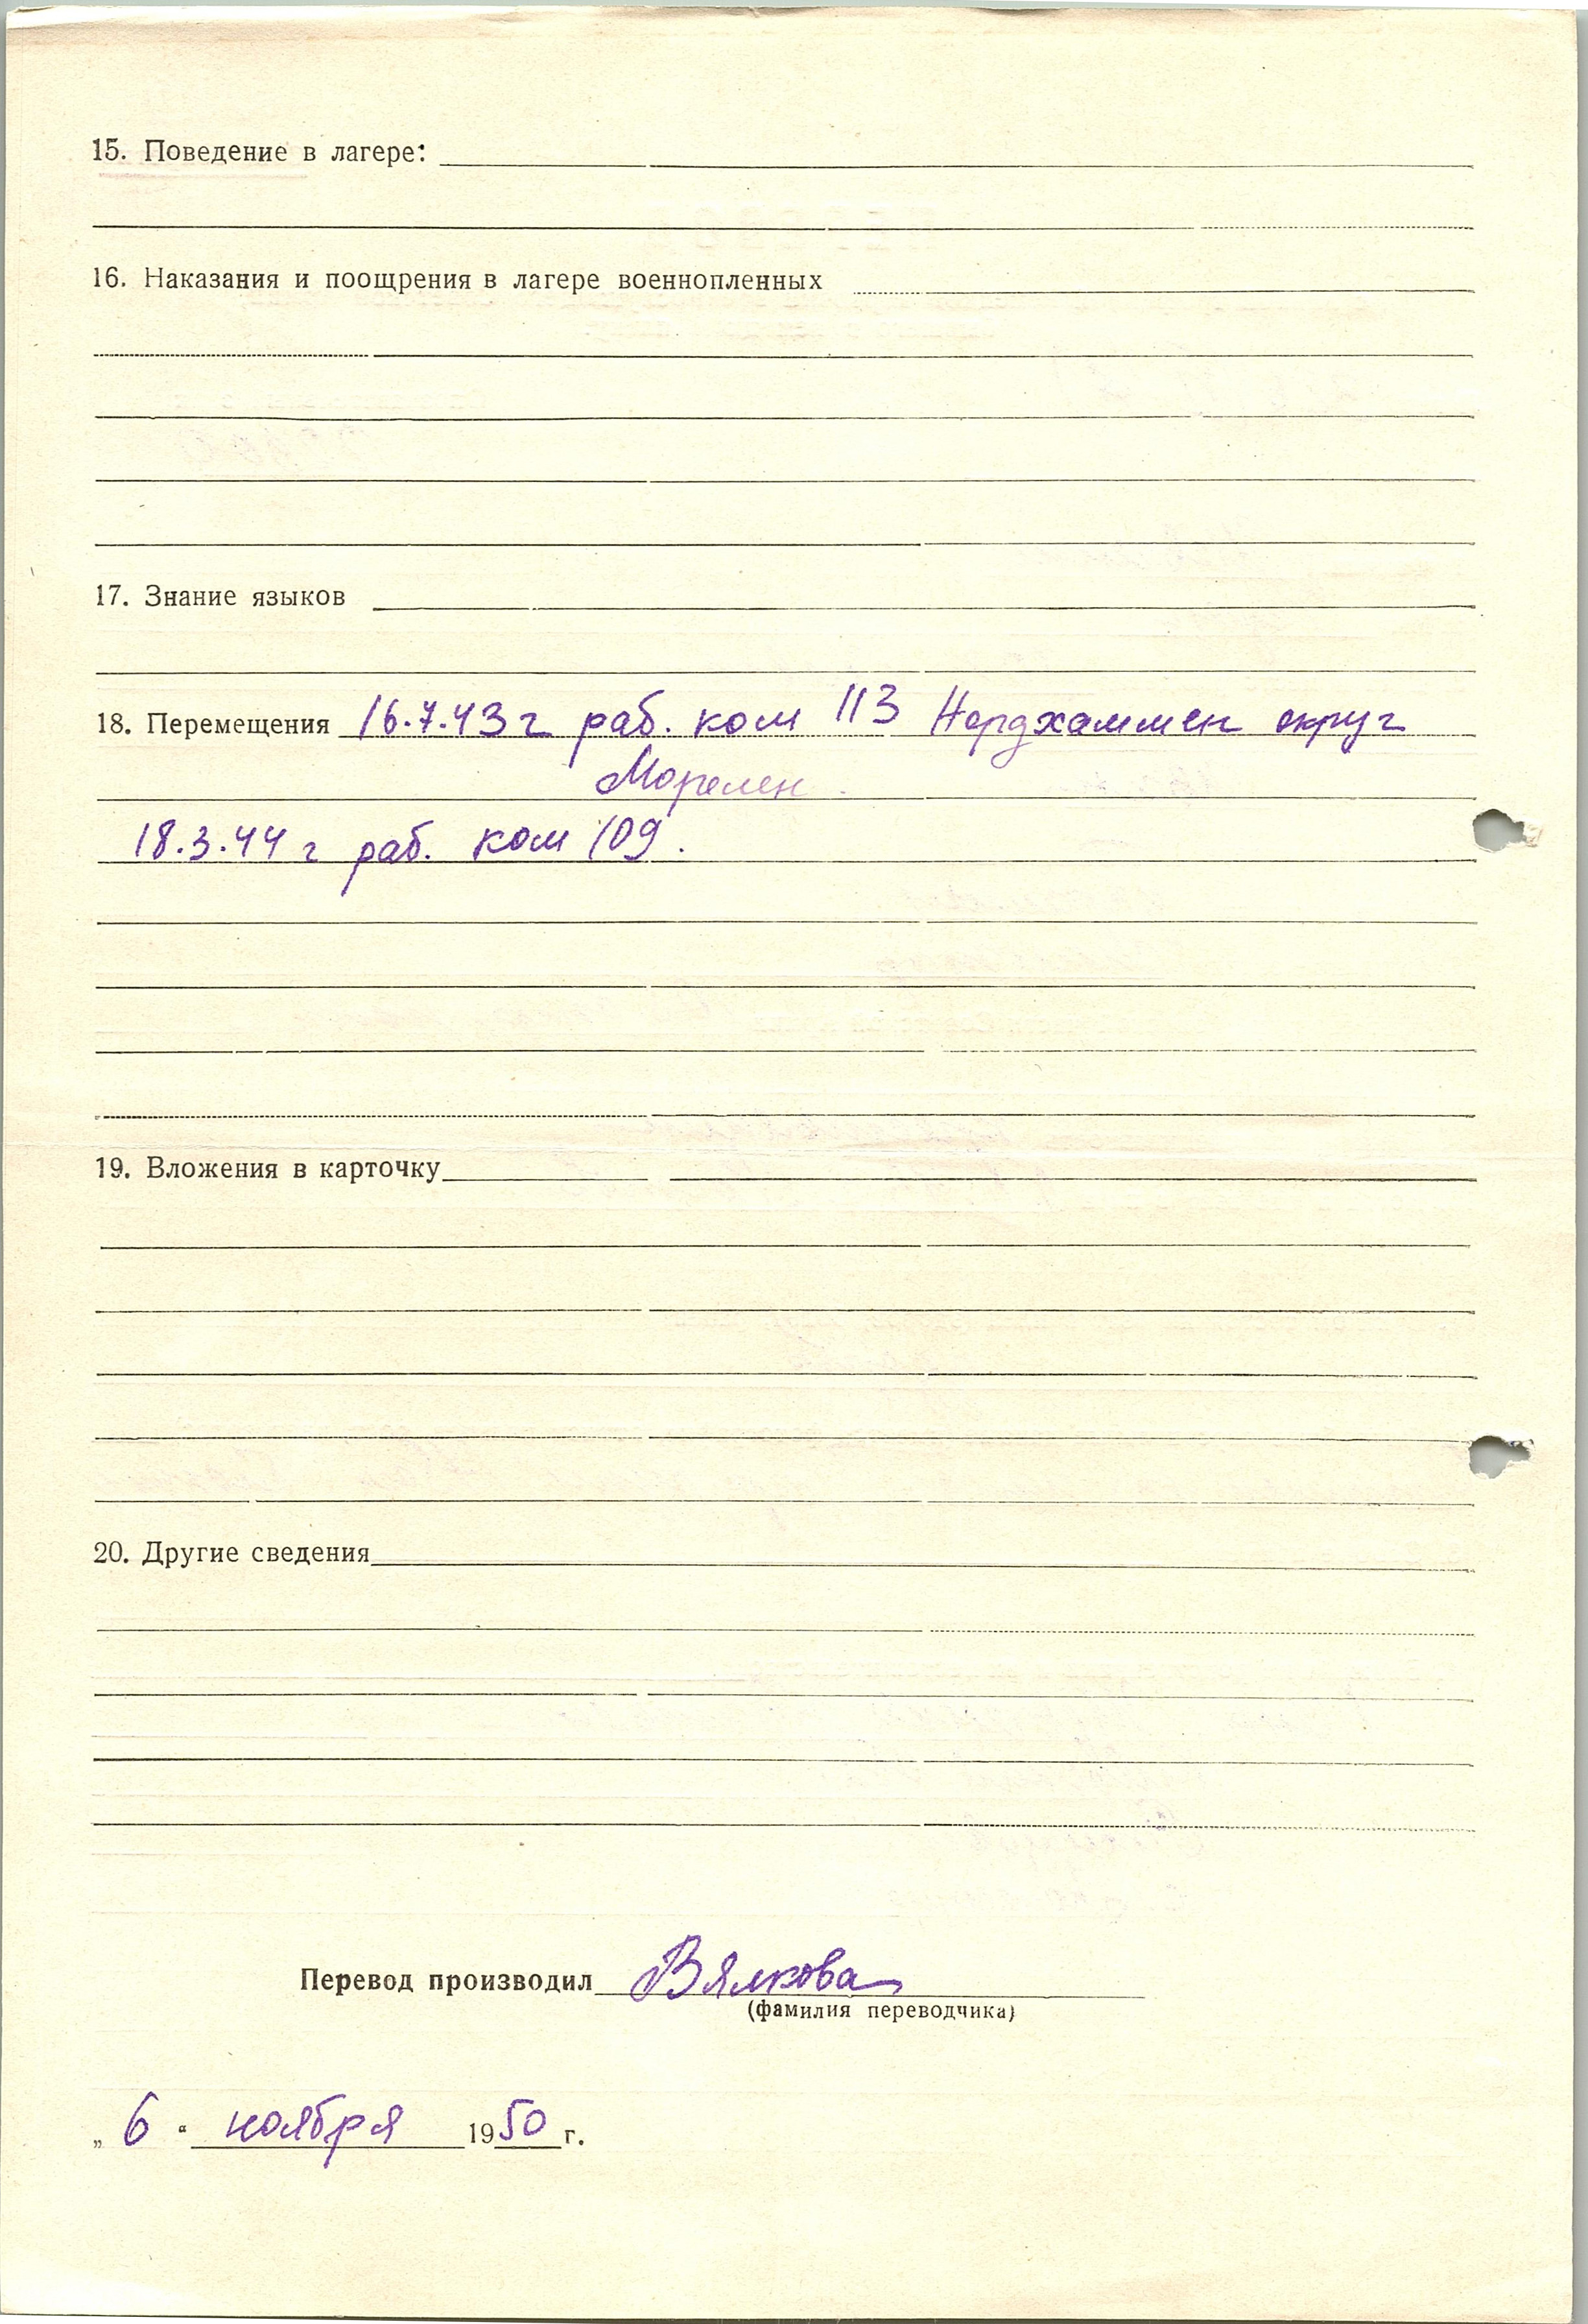 15. Поведение в лагере:
16. Наказания и поощрения в лагере военнопленных
17. Знание языков
18. Перемещения 16.7.43 г раб. ком 113 Нордхаммен округ
Морелен
18.3.44 г раб. ком 109.
19. Вложения в карточку
20. Другие сведения
Перевод производил Вялкова
(фамилия переводчика)
„ 6 “ ноября 1950 г.